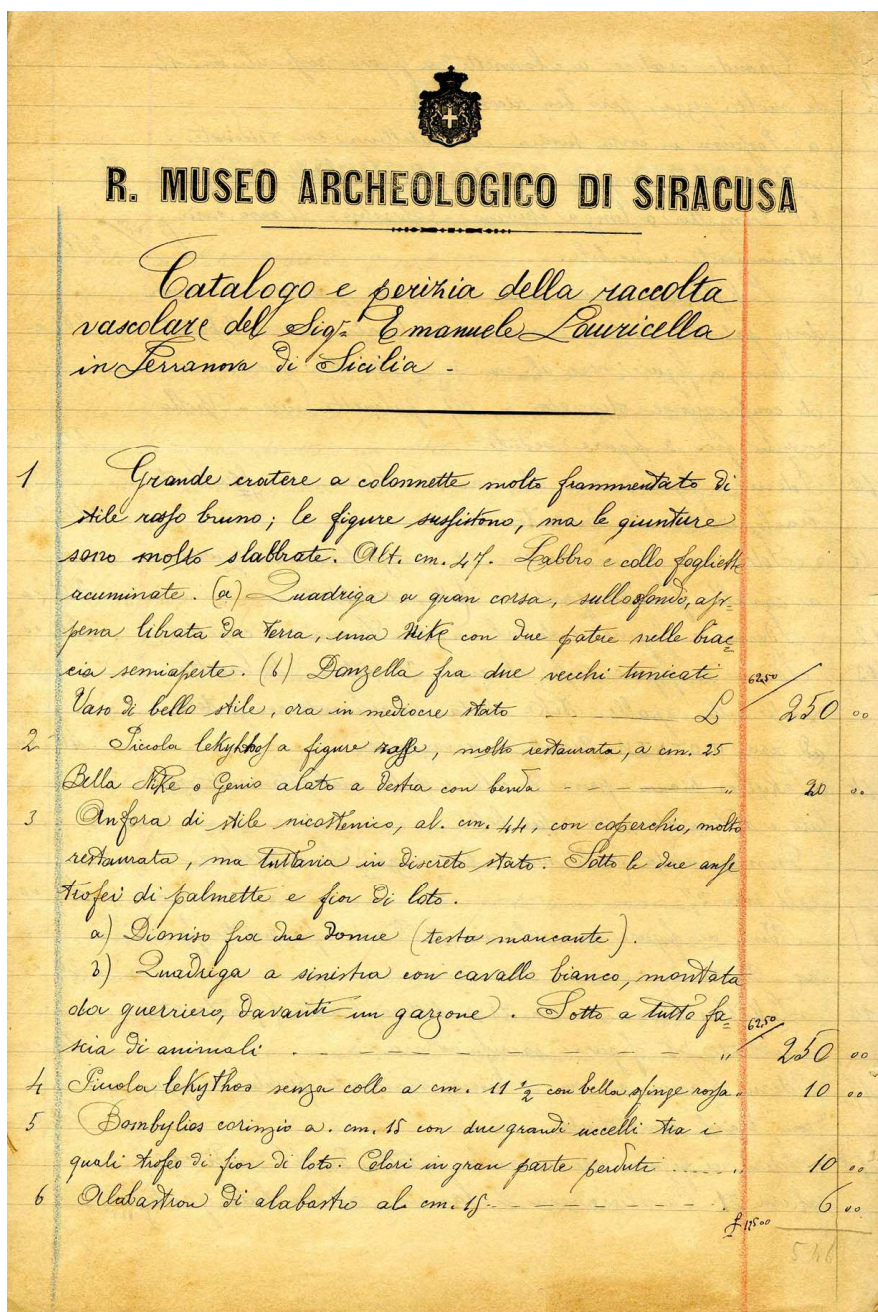 R. MUSEO ARCHEOLOGICO DI SIRACUSA
Catalogo e perizia della raccolta
vascolare del Sigr. Emanuele Lauricella
in Terranova di Sicilia -
1 Grande cratere a colonnette molto frammentato di
stile rosso bruno; le figure sussistono, ma le giunture
sono molto slabbrate. Alt. cm. 47. Labbro e collo fogliette
acuminate. (a) Quadriga a gran corsa, sullo sfondo, ap=
pena librata da terra, una Nike con due patere nelle brac=
cia semiaperte. (b) Donzella fra due vecchi tunicati 62,50
Vaso di bello stile, ora in mediocre stato L 250 00
2 Piccola lekythos a figure rosse, molto restaurata, a cm. 25
Bella Nike o Genio alato a destra con benda " 20 00
3 Anfora di stile nicostenico, al. cm. 44, con coperchio, molto
restaurata, ma tuttavia in discreto stato. Sotto le due anse
trofei di palmette e fior di loto.
a) Dioniso fra due donne (testa mancante).
b) Quadriga a sinistra con cavallo bianco, montata
da guerriero, davanti un garzone. Sotto a tutto fa= 62,50
scia di animali " 250 00
4 Piccola lekythos senza collo a cm. 11 1/2 con bella sfinge rossa " 10 00
5 Bombylios corinzio a. cm. 15 con due grandi uccelli tra i
quali trofeo di fior di loto. Colori in gran parte perduti " 10 00
6 Alabastron di alabastro al. cm. 15 6 00
£ 125 00
546